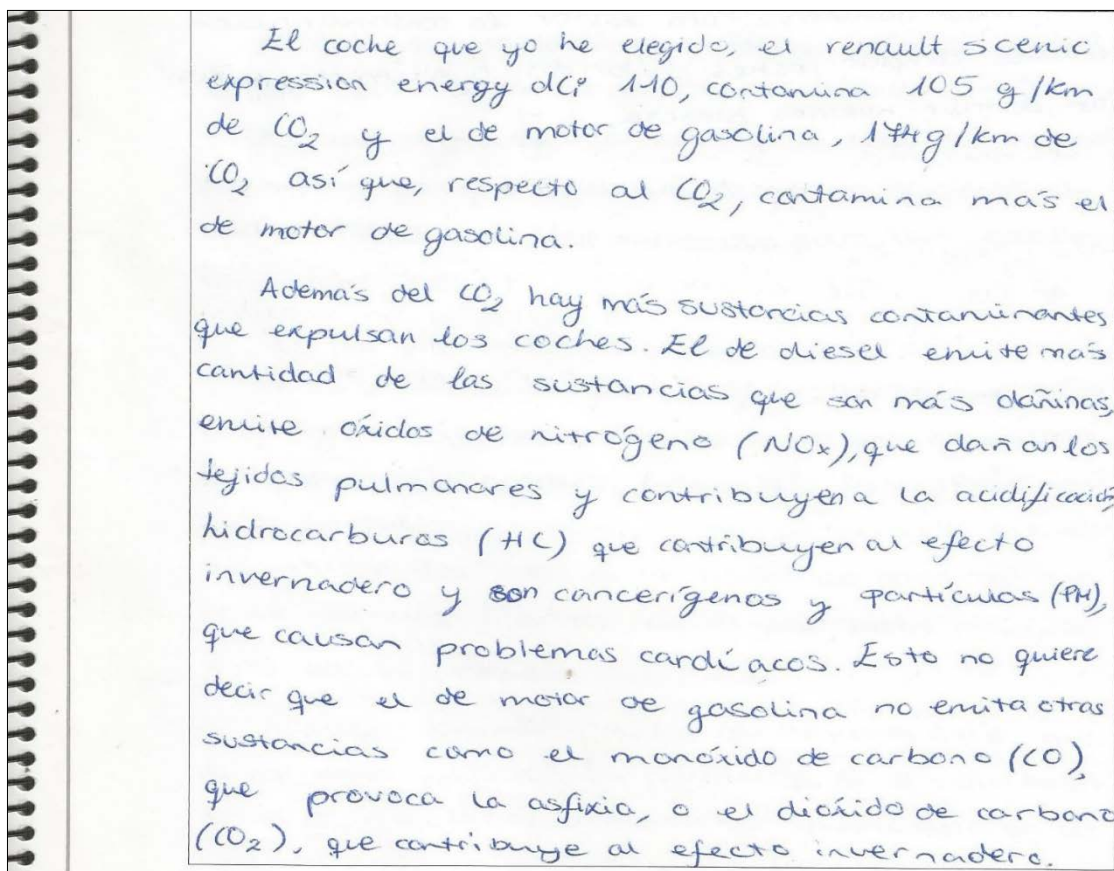 El coche que yo he elegido, el renault scenic
expression energy dCi 110, contamina 105 g/km
de CO₂ y el de motor de gasolina, 174 g/km de
CO₂ así que, respecto al CO₂, contamina más el
de motor de gasolina.
Además del CO₂ hay más sustancias contaminantes
que expulsan los coches. El de diesel emite más
cantidad de las sustancias que son más dañinas,
emite óxidos de nitrógeno (NOx), que dañan los
tejidos pulmonares y contribuyen a la acidificación,
hidrocarburos (HC) que contribuyen al efecto
invernadero y son cancerígenos y partículas (PM),
que causan problemas cardíacos. Esto no quiere
decir que el de motor de gasolina no emita otras
sustancias como el monóxido de carbono (CO),
que provoca la asfixia, o el dióxido de carbono
(CO₂), que contribuye al efecto invernadero.